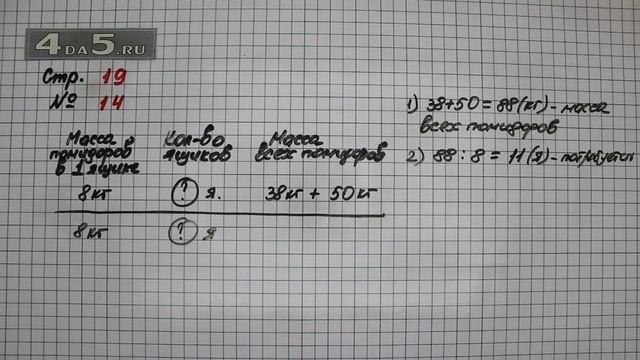 4DA5.RU
Стр. 19
№ 14
Масса помидоров в 1 ящике
Кол-во ящиков
Масса всех помидоров
8кг ? я. 38кг + 50кг
8кг ? я
1) 38+50=88(кг)-масса
всех помидоров
2) 88:8=11(я)-потребуется